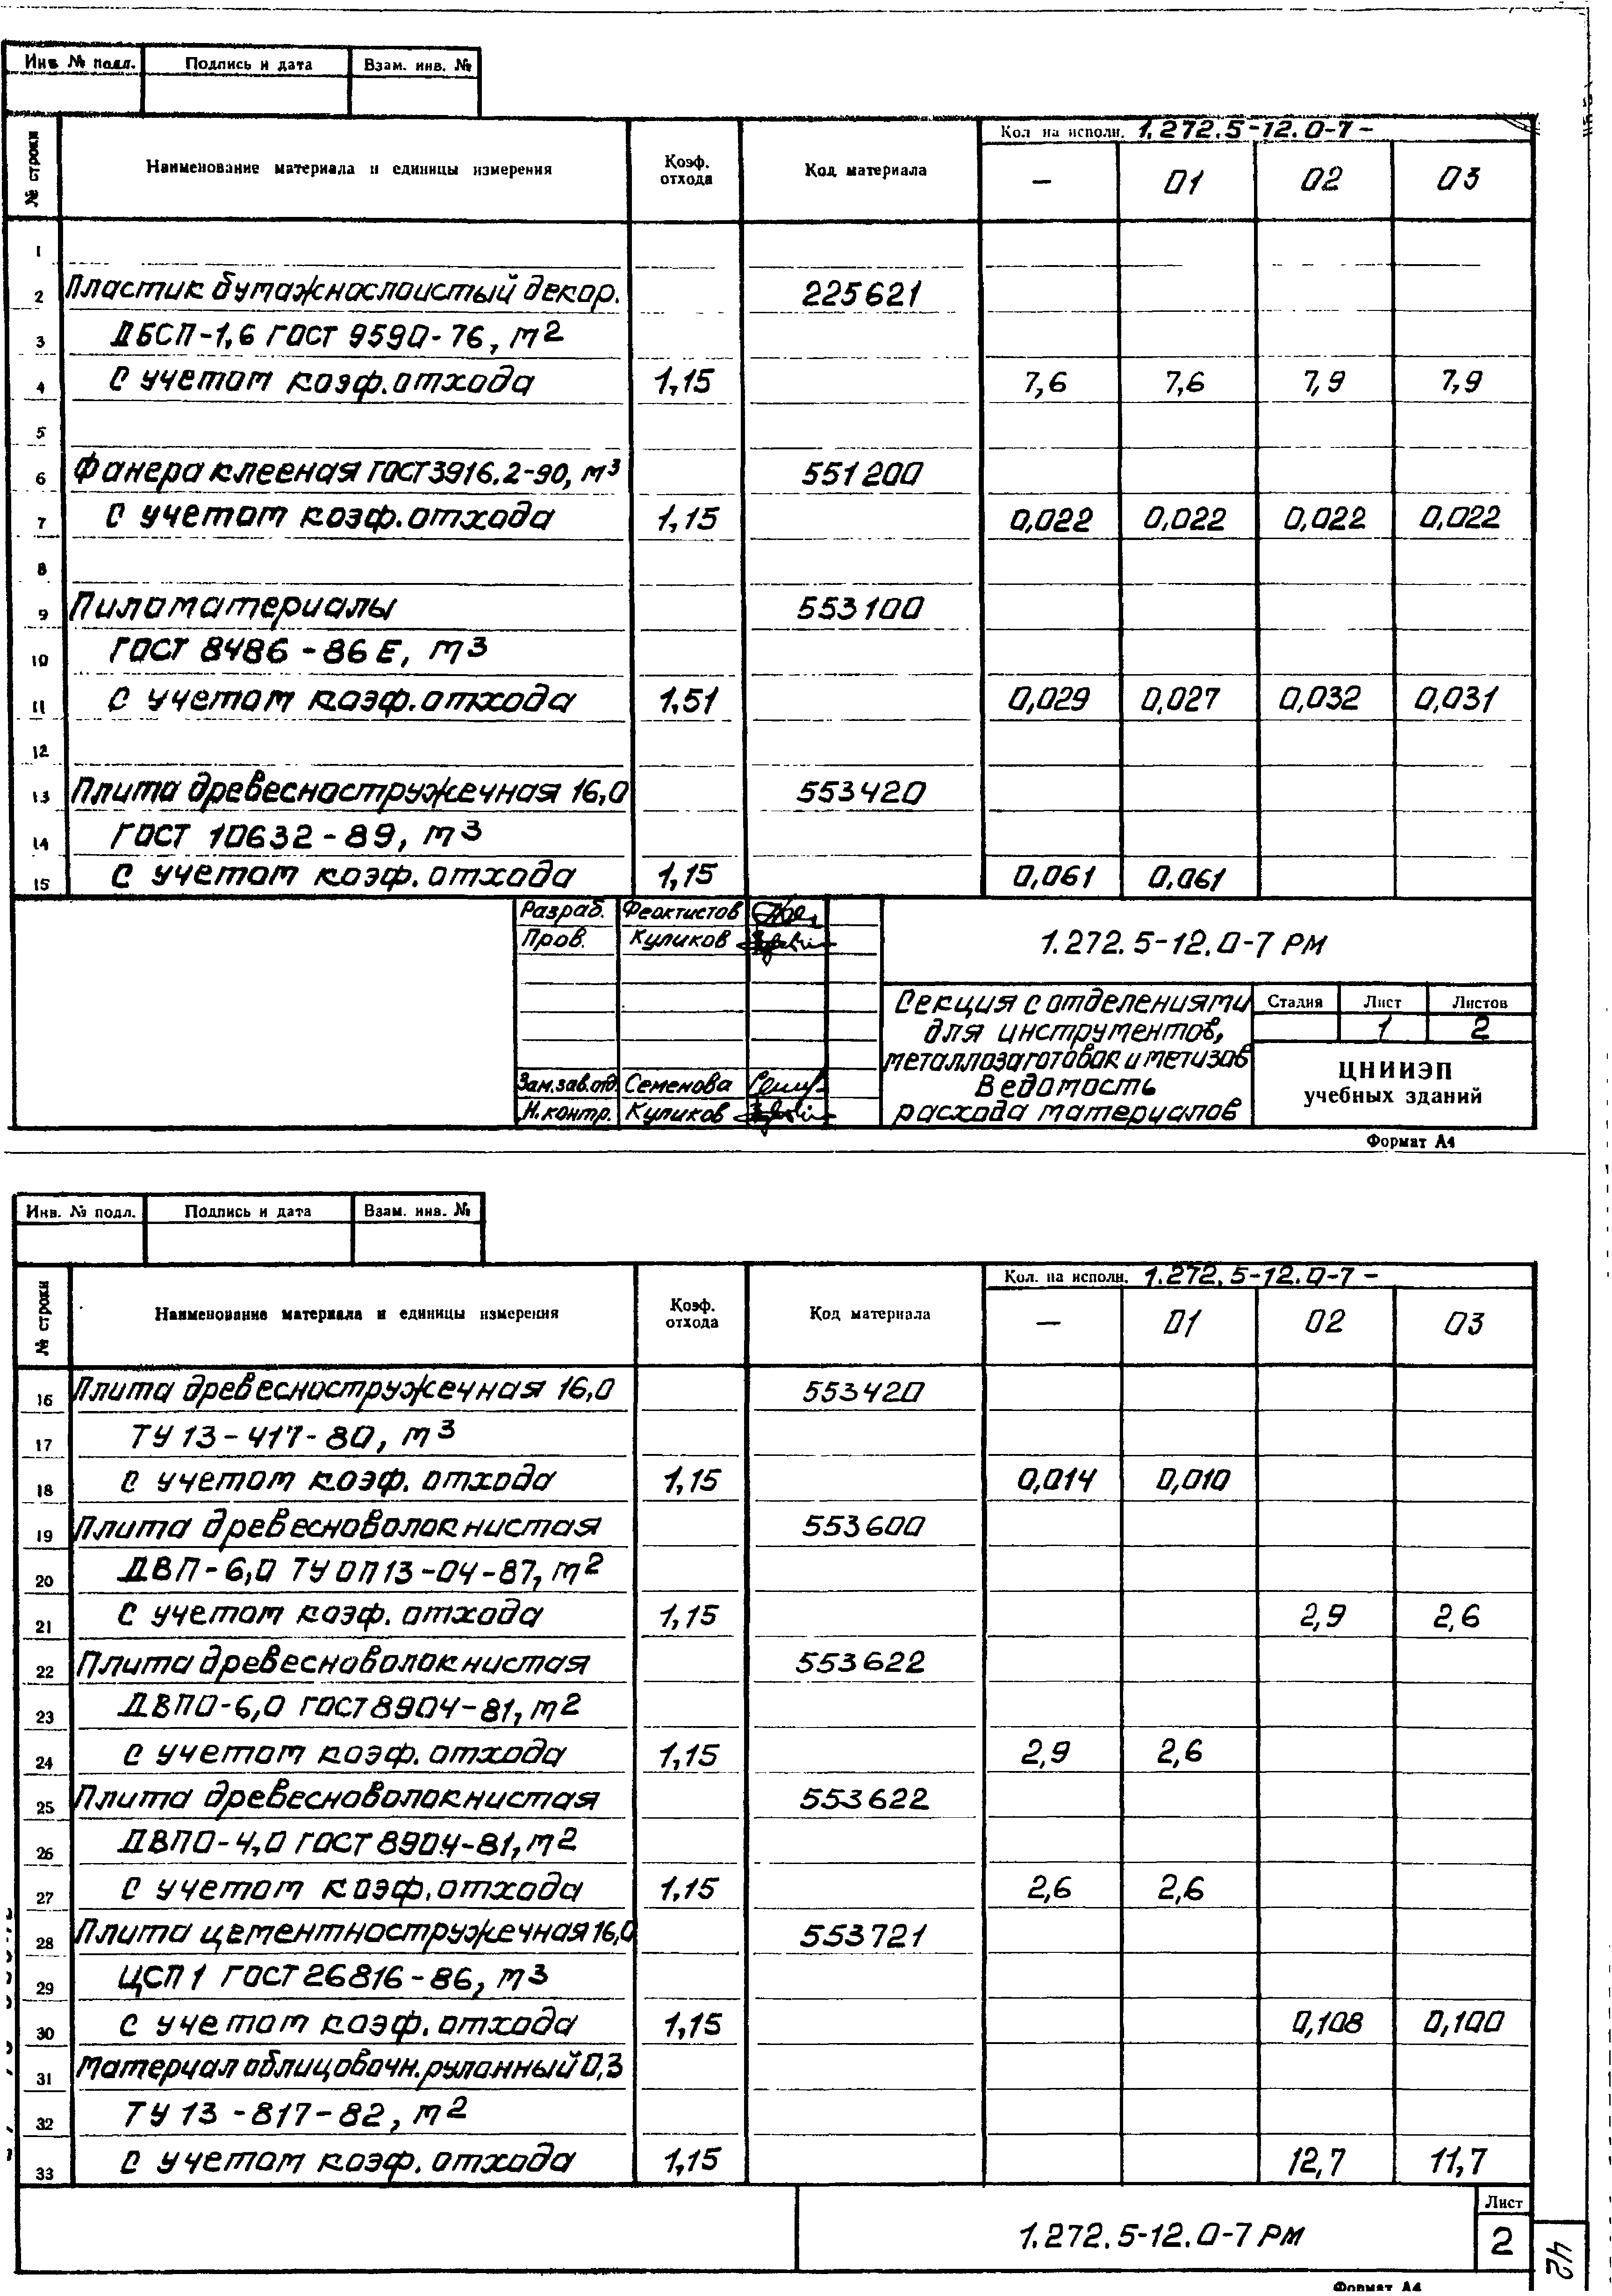 Инв № подл. Подпись и дата Взам. инв. №
№ строки Наименование материала и единицы измерения Коэф. отхода Код материала Кол на исполн. 1.272.5-12.0-7-
— 01 02 03
1
2 Пластик бумажнослоистый декор. 225621
3 ДБСП-1,6 ГОСТ 9590-76, м2
4 с учетом коэф. отхода 1,15 7,6 7,6 7,9 7,9
5
6 Фанера клееная ГОСТ 3916.2-90, м3 551200
7 с учетом коэф. отхода 1,15 0,022 0,022 0,022 0,022
8
9 Пиломатериалы 553100
10 ГОСТ 8486-86Е, м3
11 с учетом коэф. отхода 1,51 0,029 0,027 0,032 0,031
12
13 Плита древесностружечная 16,0 553420
14 ГОСТ 10632-89, м3
15 с учетом коэф. отхода 1,15 0,061 0,061
Разраб. Феоктистов
Пров. Куликов
1.272.5-12.0-7 РМ
Секция с отделениями
для инструментов,
металлозаготовок и метизов
Ведомость
расхода материалов
Стадия Лист Листов
1 2
ЦНИИЭП
учебных зданий
Зам.зав.отд Семенова
Н.контр. Куликов
Формат А4
Инв. № подл. Подпись и дата Взам. инв. №
№ строки Наименование материала и единицы измерения Коэф. отхода Код материала Кол. на исполн. 1.272.5-12.0-7-
— 01 02 03
16 Плита древесностружечная 16,0 553420
17 ТУ 13-417-80, м3
18 с учетом коэф. отхода 1,15 0,014 0,010
19 Плита древесноволокнистая 553600
20 ДВП-6,0 ТУ ОП 13-04-87, м2
21 с учетом коэф. отхода 1,15 2,9 2,6
22 Плита древесноволокнистая 553622
23 ДВПО-6,0 ГОСТ 8904-81, м2
24 с учетом коэф. отхода 1,15 2,9 2,6
25 Плита древесноволокнистая 553622
26 ДВПО-4,0 ГОСТ 8904-81, м2
27 с учетом коэф. отхода 1,15 2,6 2,6
28 Плита цементностружечная 16,0 553721
29 ЦСП 1 ГОСТ 26816-86, м3
30 с учетом коэф. отхода 1,15 0,108 0,100
31 Материал облицовочн. рулонный 0,3
32 ТУ 13-817-82, м2
33 с учетом коэф. отхода 1,15 12,7 11,7
1.272.5-12.0-7 РМ
Лист
2
42
Формат А4